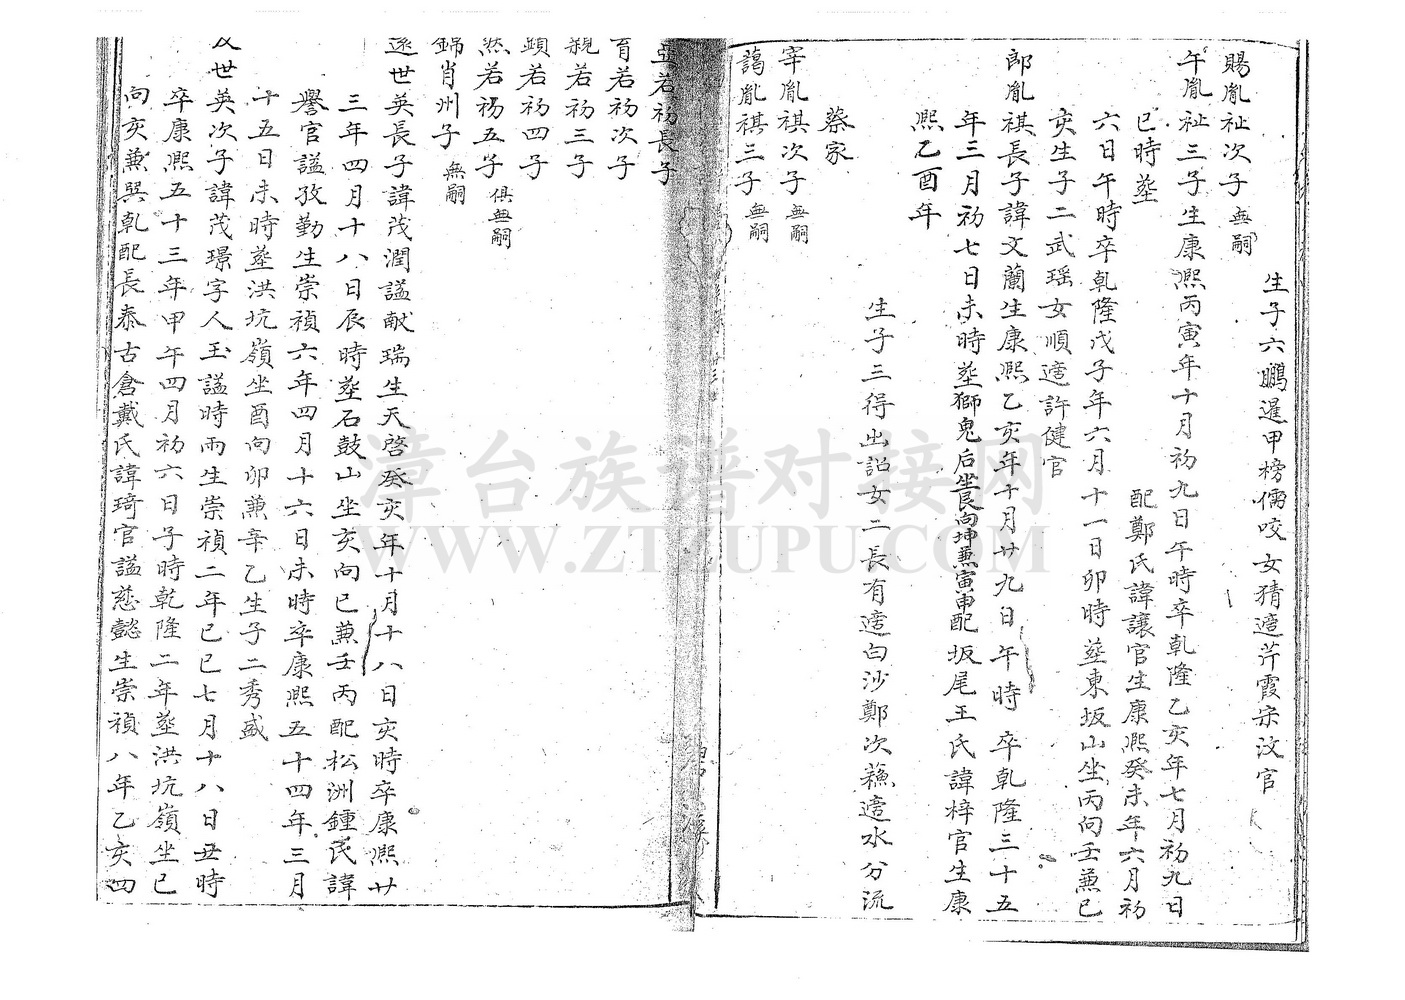 生子六鵬暹甲榜儒咬女猜適芹霞宋汶官
賜胤祉次子無嗣
午胤祉三子生康熙丙寅年十月初九日午時卒乾隆乙亥年七月初九日
巳時塟
配鄭氏諱讓官生康熙癸未年六月初
六日午時卒乾隆戊子年六月十一日卯時塟東坂山坐丙向壬兼巳
亥生子二武瑶女順適許健官
郎胤祺長子諱文蘭生康熙乙亥年十月廿九日午時卒乾隆三十五
年三月初七日未時塟獅鬼后坐艮向坤兼寅申配坂尾王氏諱梓官生康
熙乙酉年
生子三得出詔女二長有適白沙鄭次蘓適水分流
蔡家
宰胤祺次子無嗣
蔼胤祺三子無嗣
亞若礽長子
育若礽次子
親若礽三子
顕若礽四子
然若礽五子俱無嗣
錦肖州子無嗣
逐世英長子諱茂潤諡献瑞生天啓癸亥年十月十八日亥時卒康熙廿
三年四月十八日辰時塟石鼓山坐亥向巳兼壬丙配松洲鍾氏諱
譽官諡孜勤生崇禎六年四月十六日未時卒康熙五十四年三月
十五日未時塟洪坑嶺坐酉向卯兼辛乙生子二秀盛
及世英次子諱茂璟字人玉諡時雨生崇禎二年己巳七月十八日丑時
卒康熙五十三年甲午四月初六日子時乾隆二年塟洪坑嶺坐巳
向亥兼巽乾配長泰古倉戴氏諱琦官諡慈懿生崇禎八年乙亥四
漳台族谱对接网
WWW.ZTZUPU.COM